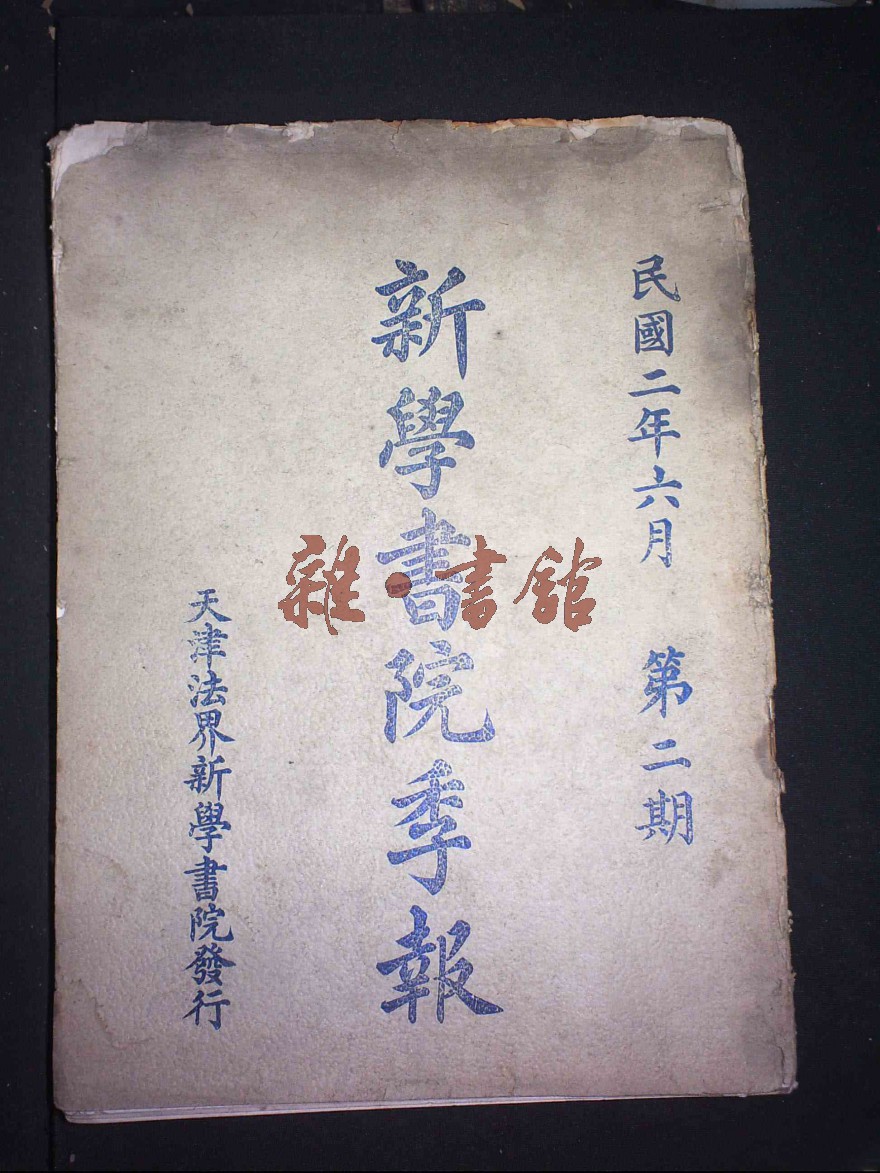 民國二年六月 第二期
新學書院季報
天津法界新學書院發行
雜·書館